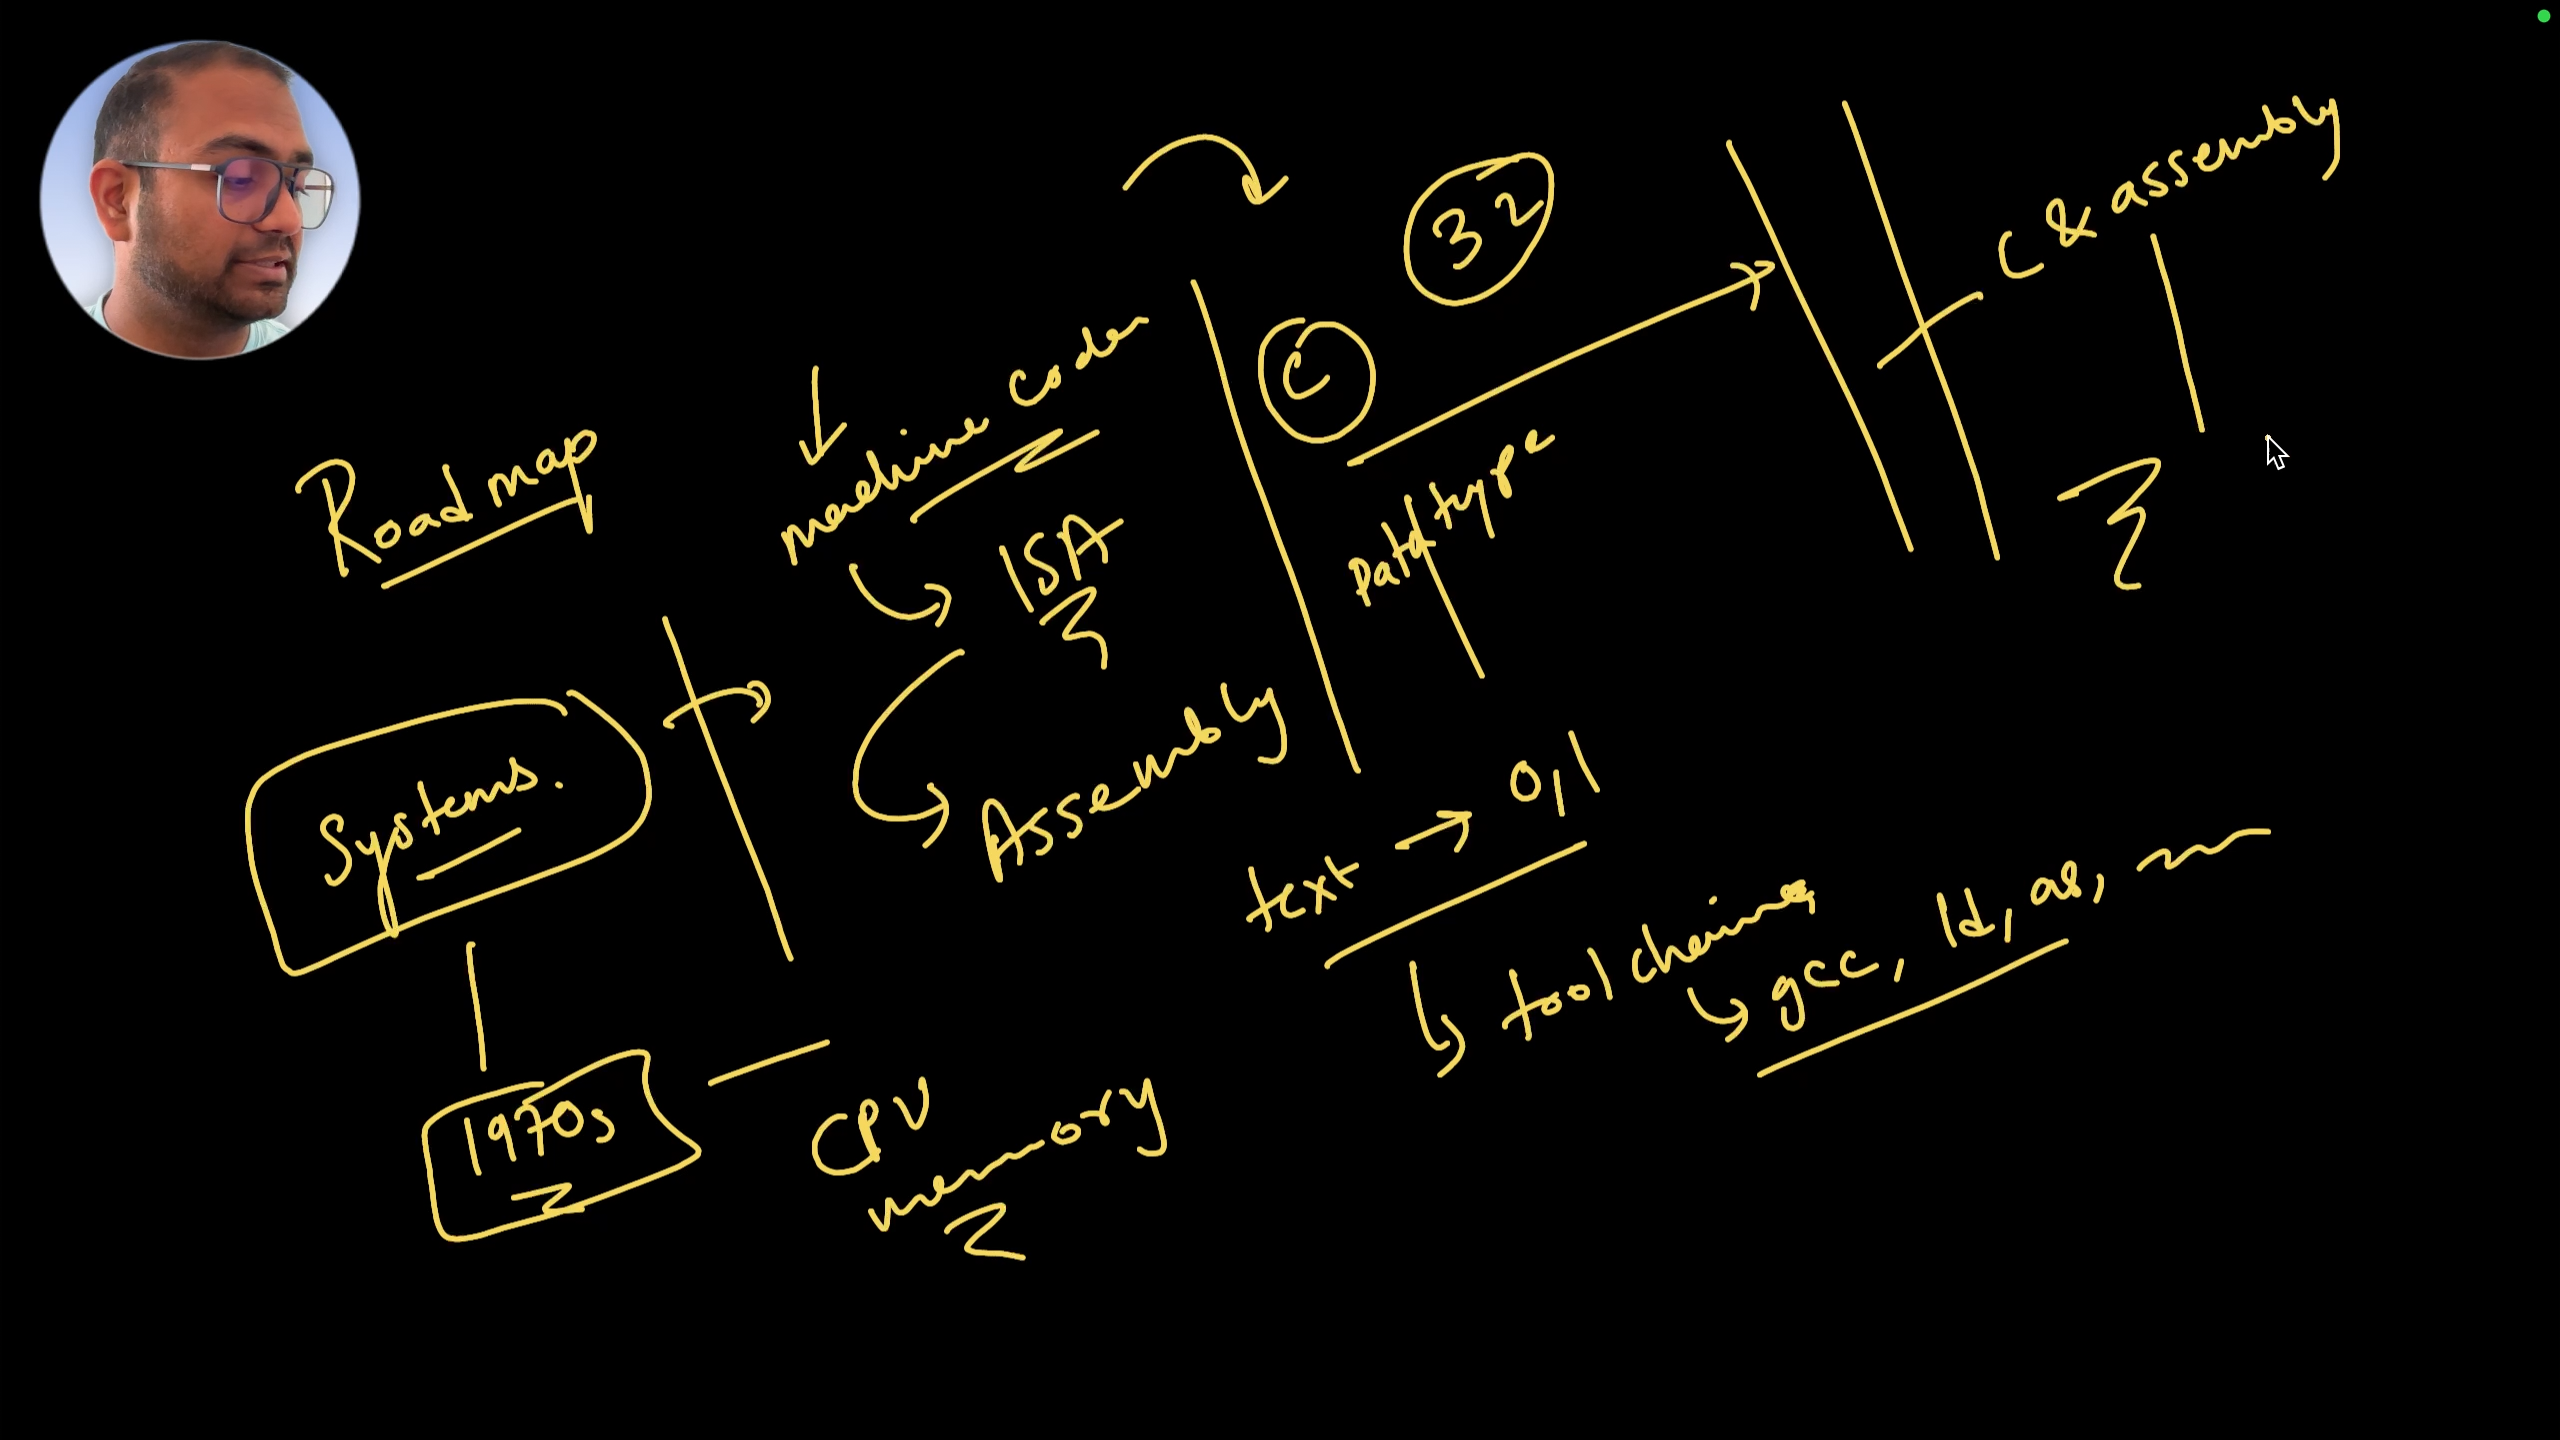 Roadmap
Systems.
1970s
CPU
memory
machine code
ISA
Assembly
C
32
datatype
text → 0,1
tool chain
gcc, ld, as,
C & assembly